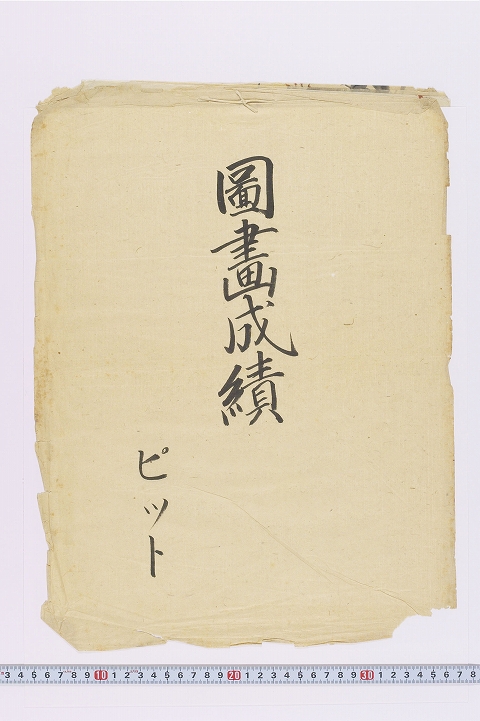 圖畫成績
ピット
3 4 5 6 7 8 9 10 1 2 3 4 5 6 7 8 9 20 1 2 3 4 5 6 7 8 9 30 1 2 3 4 5 6 7 8